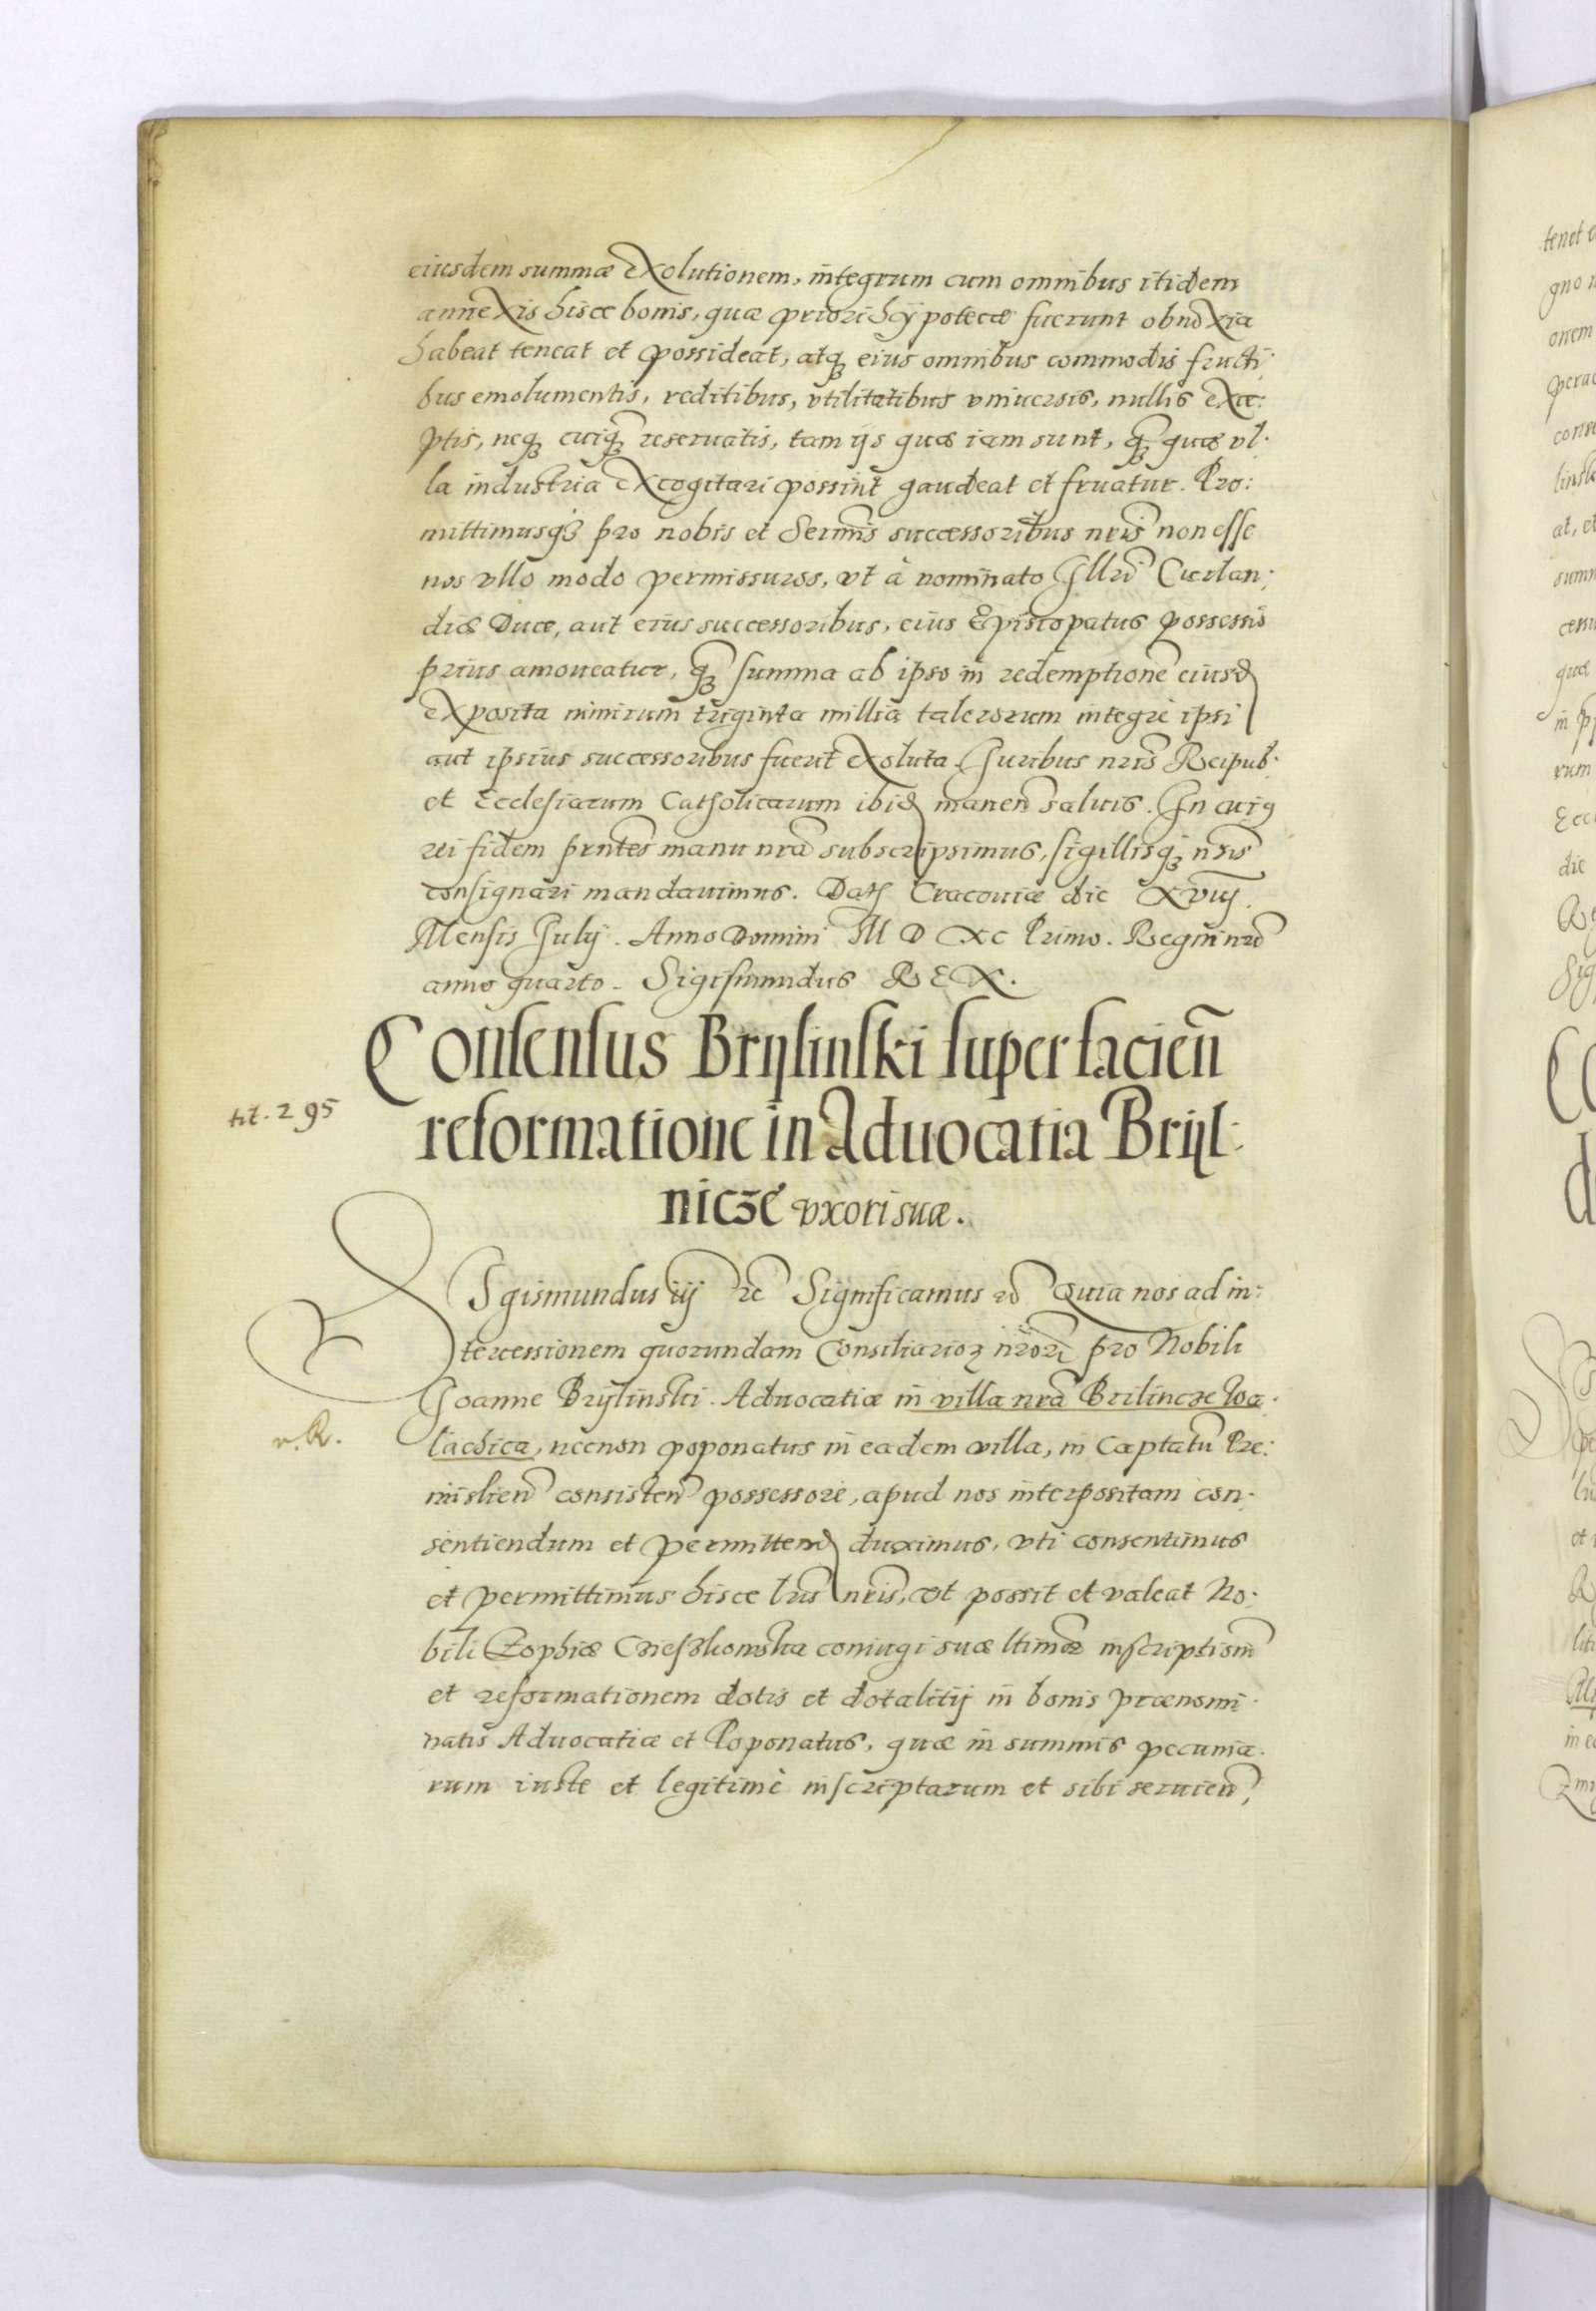 eiusdem summæ exolutionem, integrum cum omnibus itidem
annexis hisce bonis, quæ priori hypotecæ fuerunt obnoxia
habeat teneat et possideat, atq₃ eius omnibus commodis fructi:
bus emolumentis, reditibus, vtilitatibus vniuersis, nullis exce:
ptis, neq₃ cuiq₃ reseruatis, tam ijs quæ iam sunt, q̃₃ quæ vl:
la industria excogitari possint gaudeat et fruatur. Pro:
mittimusq₃ pro nobis et Sermis successoribus nris̃ non esse
nos vllo modo permissuros, vt à nominato Illri Curlan:
diæ Duce, aut eius successoribus, eius Episcopatus possessio
prius amoueatur, q̃₃ summa ab ipso in redemptione eiusd
exposita nimirum triginta millia talerorum integrè ipsi
aut ipsius successoribus fuerit exoluta. Juribus nris̃ Reipub:
et Ecclesiarum Catholicarum ibid manen̄ saluis. In cuiq
rei fidem prñtes manu nrã subscripsimus, sigillisq₃ nris̃
consignari mandauimus. Datt Cracouiæ die XVIIJ.
Mensis Julij. Anno Domini M D XC Primo. Regni nrĩ
anno quarto. Sigismundus REX.
Consensus Brylinski super facien̄
reformatione in Aduocatia Bryl:
nicze vxori suæ.
tit. 295
SIgismundus iij etc Significamus etc Quia nos ad in:
tercessionem quorundam Consiliarioꝝ nr̃orũ pro Nobili
Joanne Brylinski Aduocatiæ in villa nrã Brilincze Wa:
lachica, necnon poponatus in eadem villa, in Captatũ Pre:
v. R.
mislien̄ consisten̄ possessore, apud nos interpositam con:
sentiendum et permitten̄d duximus, vti consentimus
et permittimus hisce lrĩs nris̃, vt possit et valeat No:
bili Zophiæ coniugi suæ ltimæ inscriptionẽ
et reformationem dotis et dotalitij in bonis prænomi:
natis Aduocatiæ et Poponatus, quæ in summis pecunia:
rum iuste et legitimè inscriptarum et sibi seruien̄,